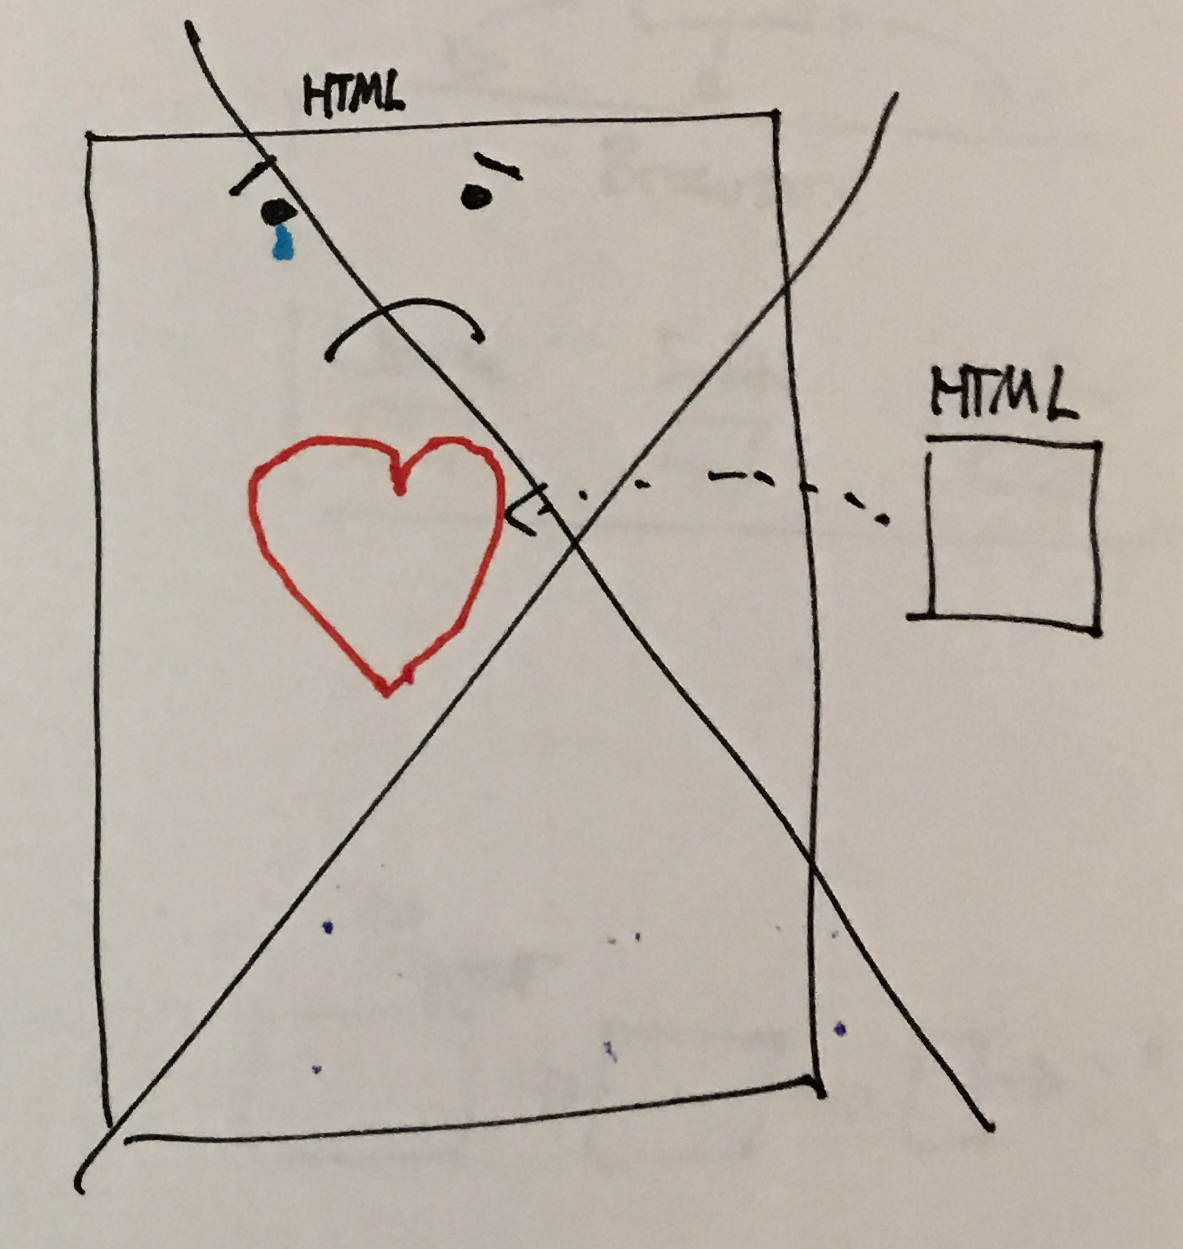 HTML
HTML